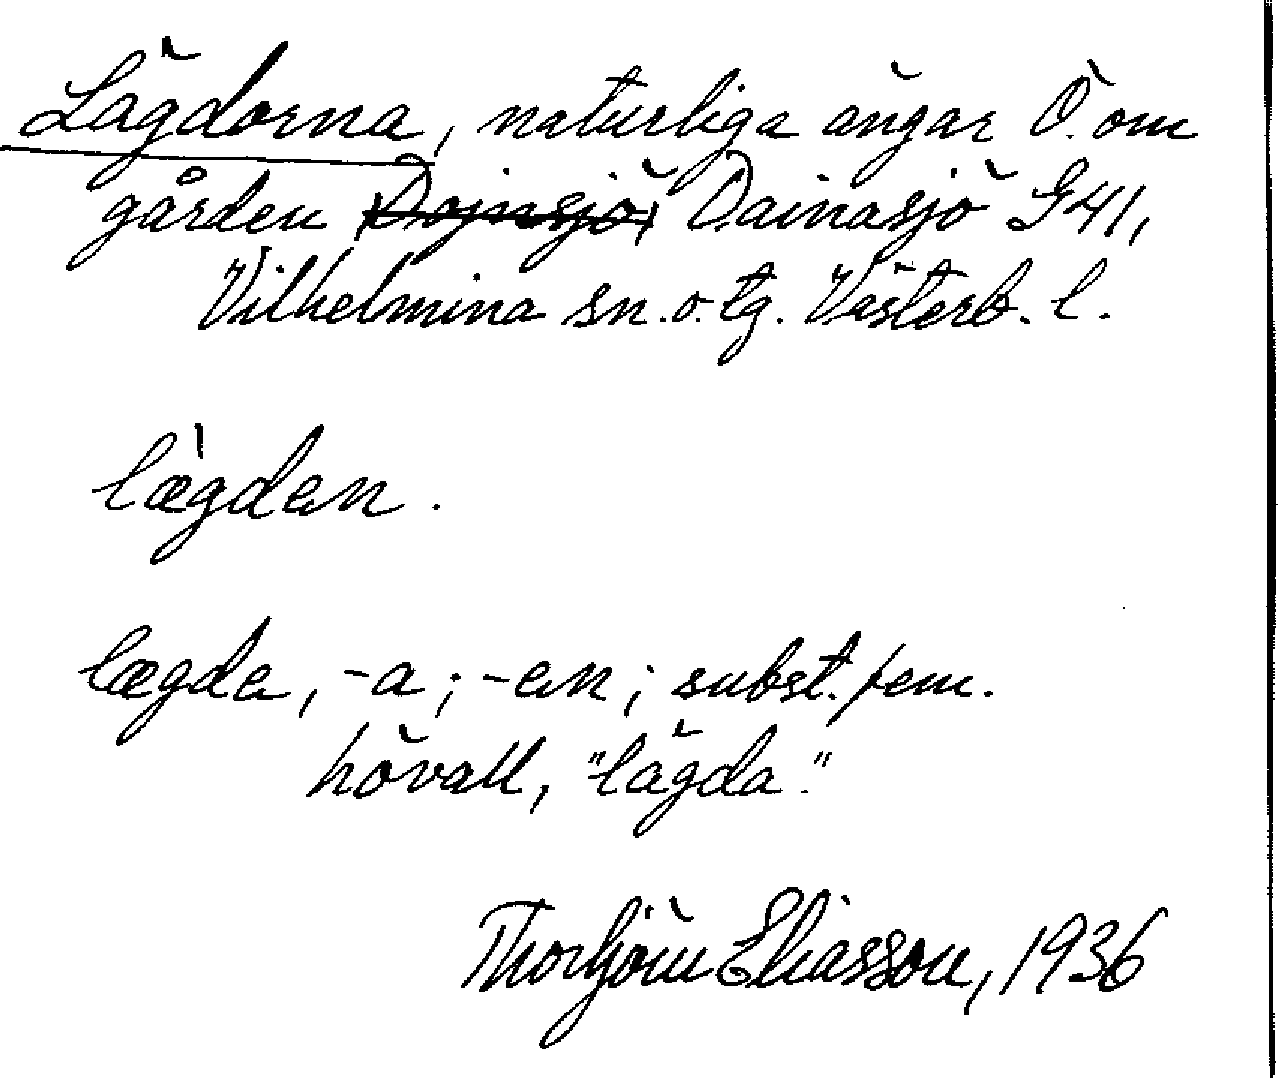 Lägdorna, naturliga ängar Ö. om
gården Dainasjö G41,
Vilhelmina sn. o. tg. Västerb. l.
lægdan.
lægda, -a; -an; subst. fem.
hövall, "lägda."
Thorbjörn Eliasson, 1936